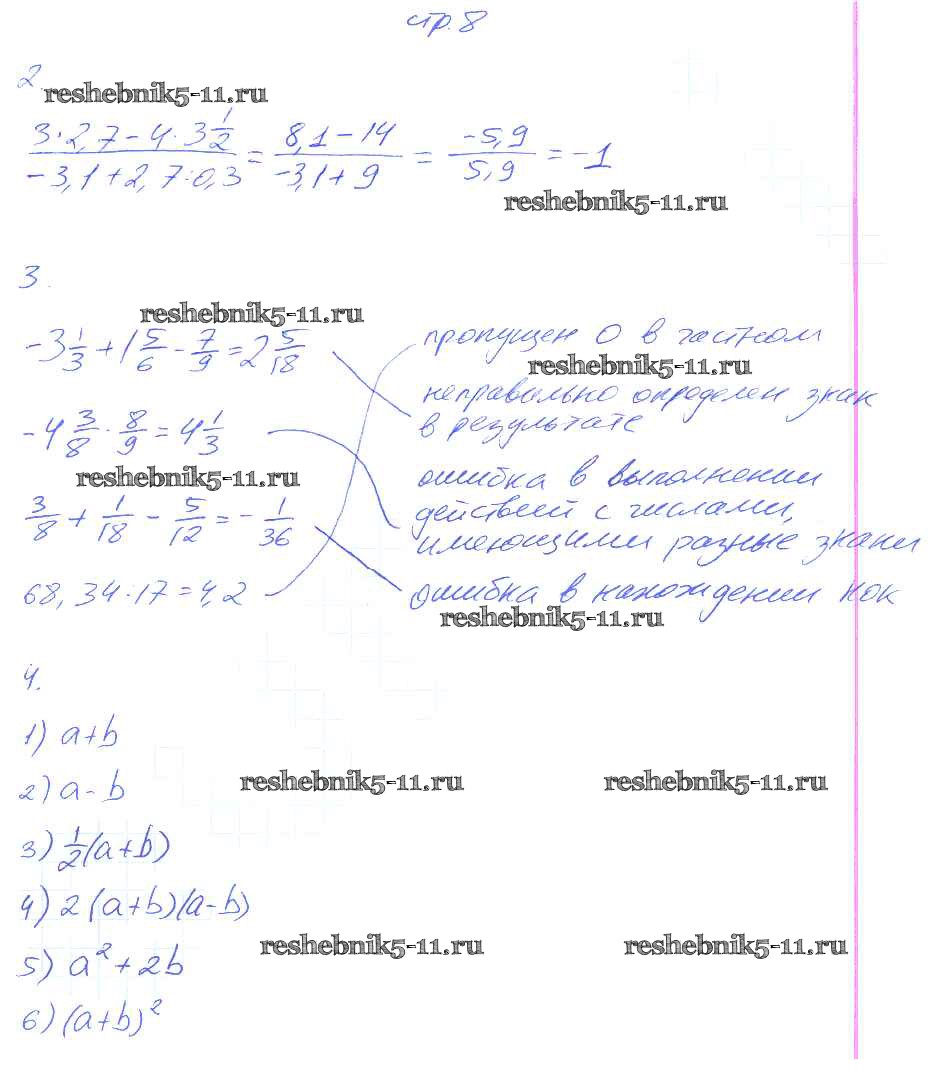 стр. 8
2.
reshebnik5-11.ru
(3·2,7 - 4·3 1/2) / (-3,1 + 2,7:0,3) = (8,1 - 14) / (-3,1 + 9) = -5,9 / 5,9 = -1
reshebnik5-11.ru
3.
reshebnik5-11.ru
-3 1/3 + 1 5/6 - 7/9 = 2 5/18
пропущен 0 в частном
reshebnik5-11.ru
неправильно определен знак
в результате
-4 3/8 · 8/9 = 4 1/3
reshebnik5-11.ru
ошибка в выполнении
действий с числами,
имеющими разные знаки
3/8 + 1/18 - 5/12 = -1/36
68,34:17 = 4,2
ошибка в нахождении нок
reshebnik5-11.ru
4.
1) a+b
2) a-b
reshebnik5-11.ru reshebnik5-11.ru
3) 1/2(a+b)
4) 2(a+b)(a-b)
reshebnik5-11.ru reshebnik5-11.ru
5) a²+2b
6) (a+b)²